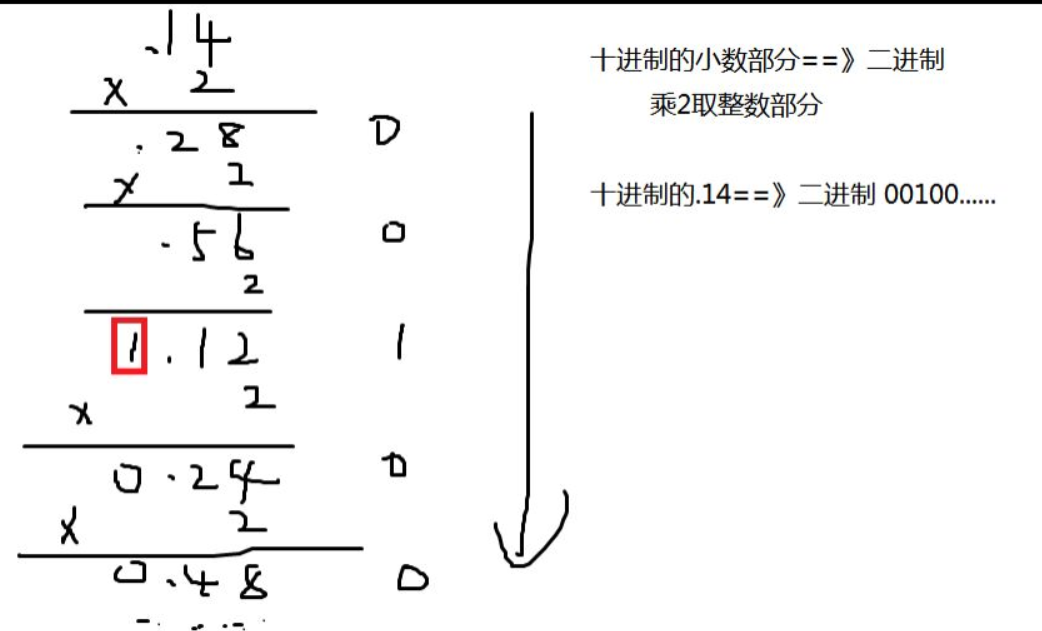 .14
x 2
.28 0
x 2
.56 0
2
1.12 1
x 2
0.24 0
x 2
0.48 0
十进制的小数部分==》二进制
乘2取整数部分
十进制的.14==》二进制 00100......